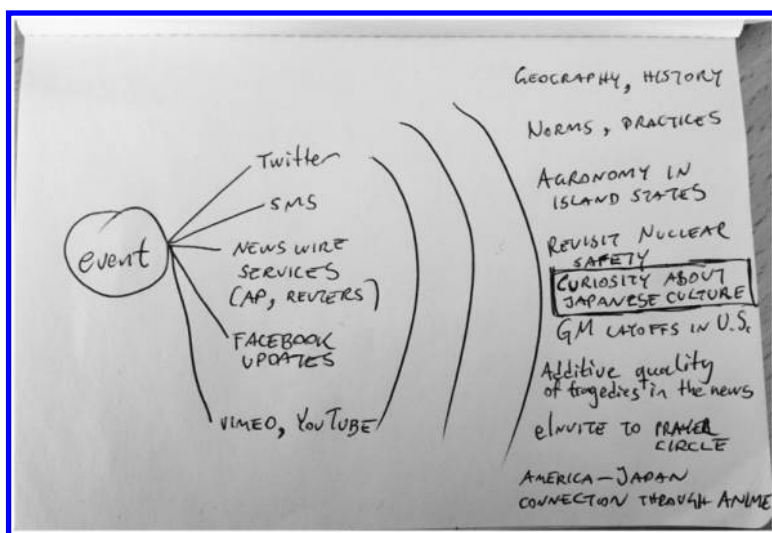 event
Twitter
SMS
NEWS WIRE
SERVICES
(AP, REUTERS)
FACEBOOK
UPDATES
VIMEO, YOUTUBE
GEOGRAPHY, HISTORY
NORMS, PRACTICES
AGRONOMY IN
ISLAND STATES
REVISIT NUCLEAR
SAFETY
CURIOSITY ABOUT
JAPANESE CULTURE
GM LAYOFFS IN U.S.
Additive quality
of tragedies in the news
eINVITE TO PRAYER
CIRCLE
AMERICA-JAPAN
CONNECTION THROUGH ANIME